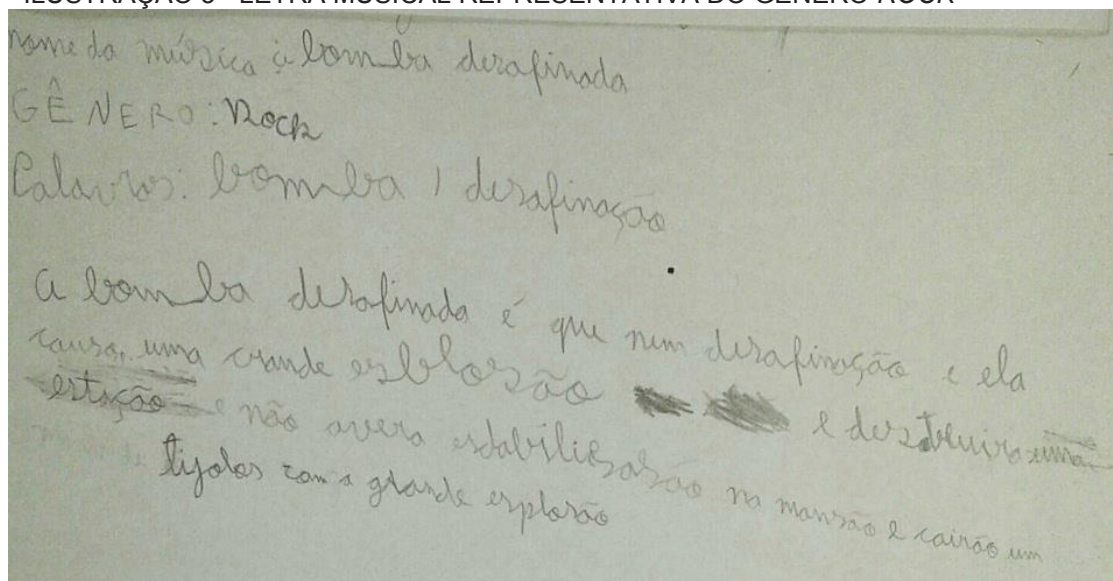 ILUSTRAÇÃO 8 - LETRA MUSICAL REPRESENTATIVA DO GÊNERO ROCK
nome da música a bomba desafinada
GÊNERO: Rock
Palavras: bomba / desafinação
a bomba desafinada é que nem desafinação e ela
causa, uma crande esblosão e destruira uma
estação e não avera estabilisasão na mansão e cairão um
tijolos com a grande explosão